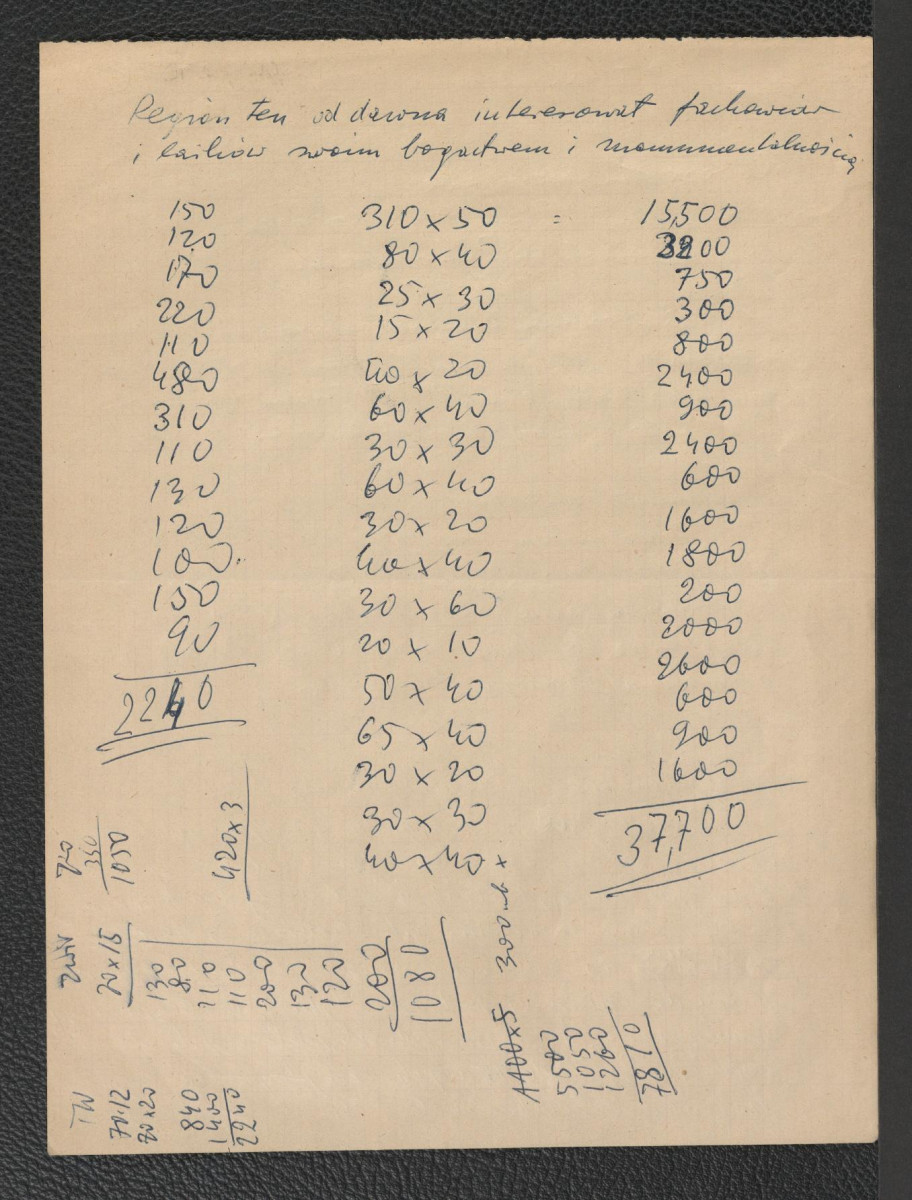 Region ten od dawna interesował fachowców
i laików swoim bogactwem i monumentalnością
150 310 x 50 = 15,500
120 80 x 40 3200
170 25 x 30 750
220 15 x 20 300
110 40 x 20 800
480 60 x 40 2400
310 30 x 30 900
110 60 x 40 2400
130 30 x 20 600
120 40 x 40 1600
100 30 x 60 1800
150 20 x 10 200
90 50 x 40 2000
2240 65 x 40 2600
30 x 20 600
30 x 30 900
40 x 40 1600
37,700
350
1050
420 x 3
20 x 15
130
80
110
200
130
120
200
1080
300 mb x
1100 x 5
5500
1050
1260
7810
TW
70.12
840
1400
2240